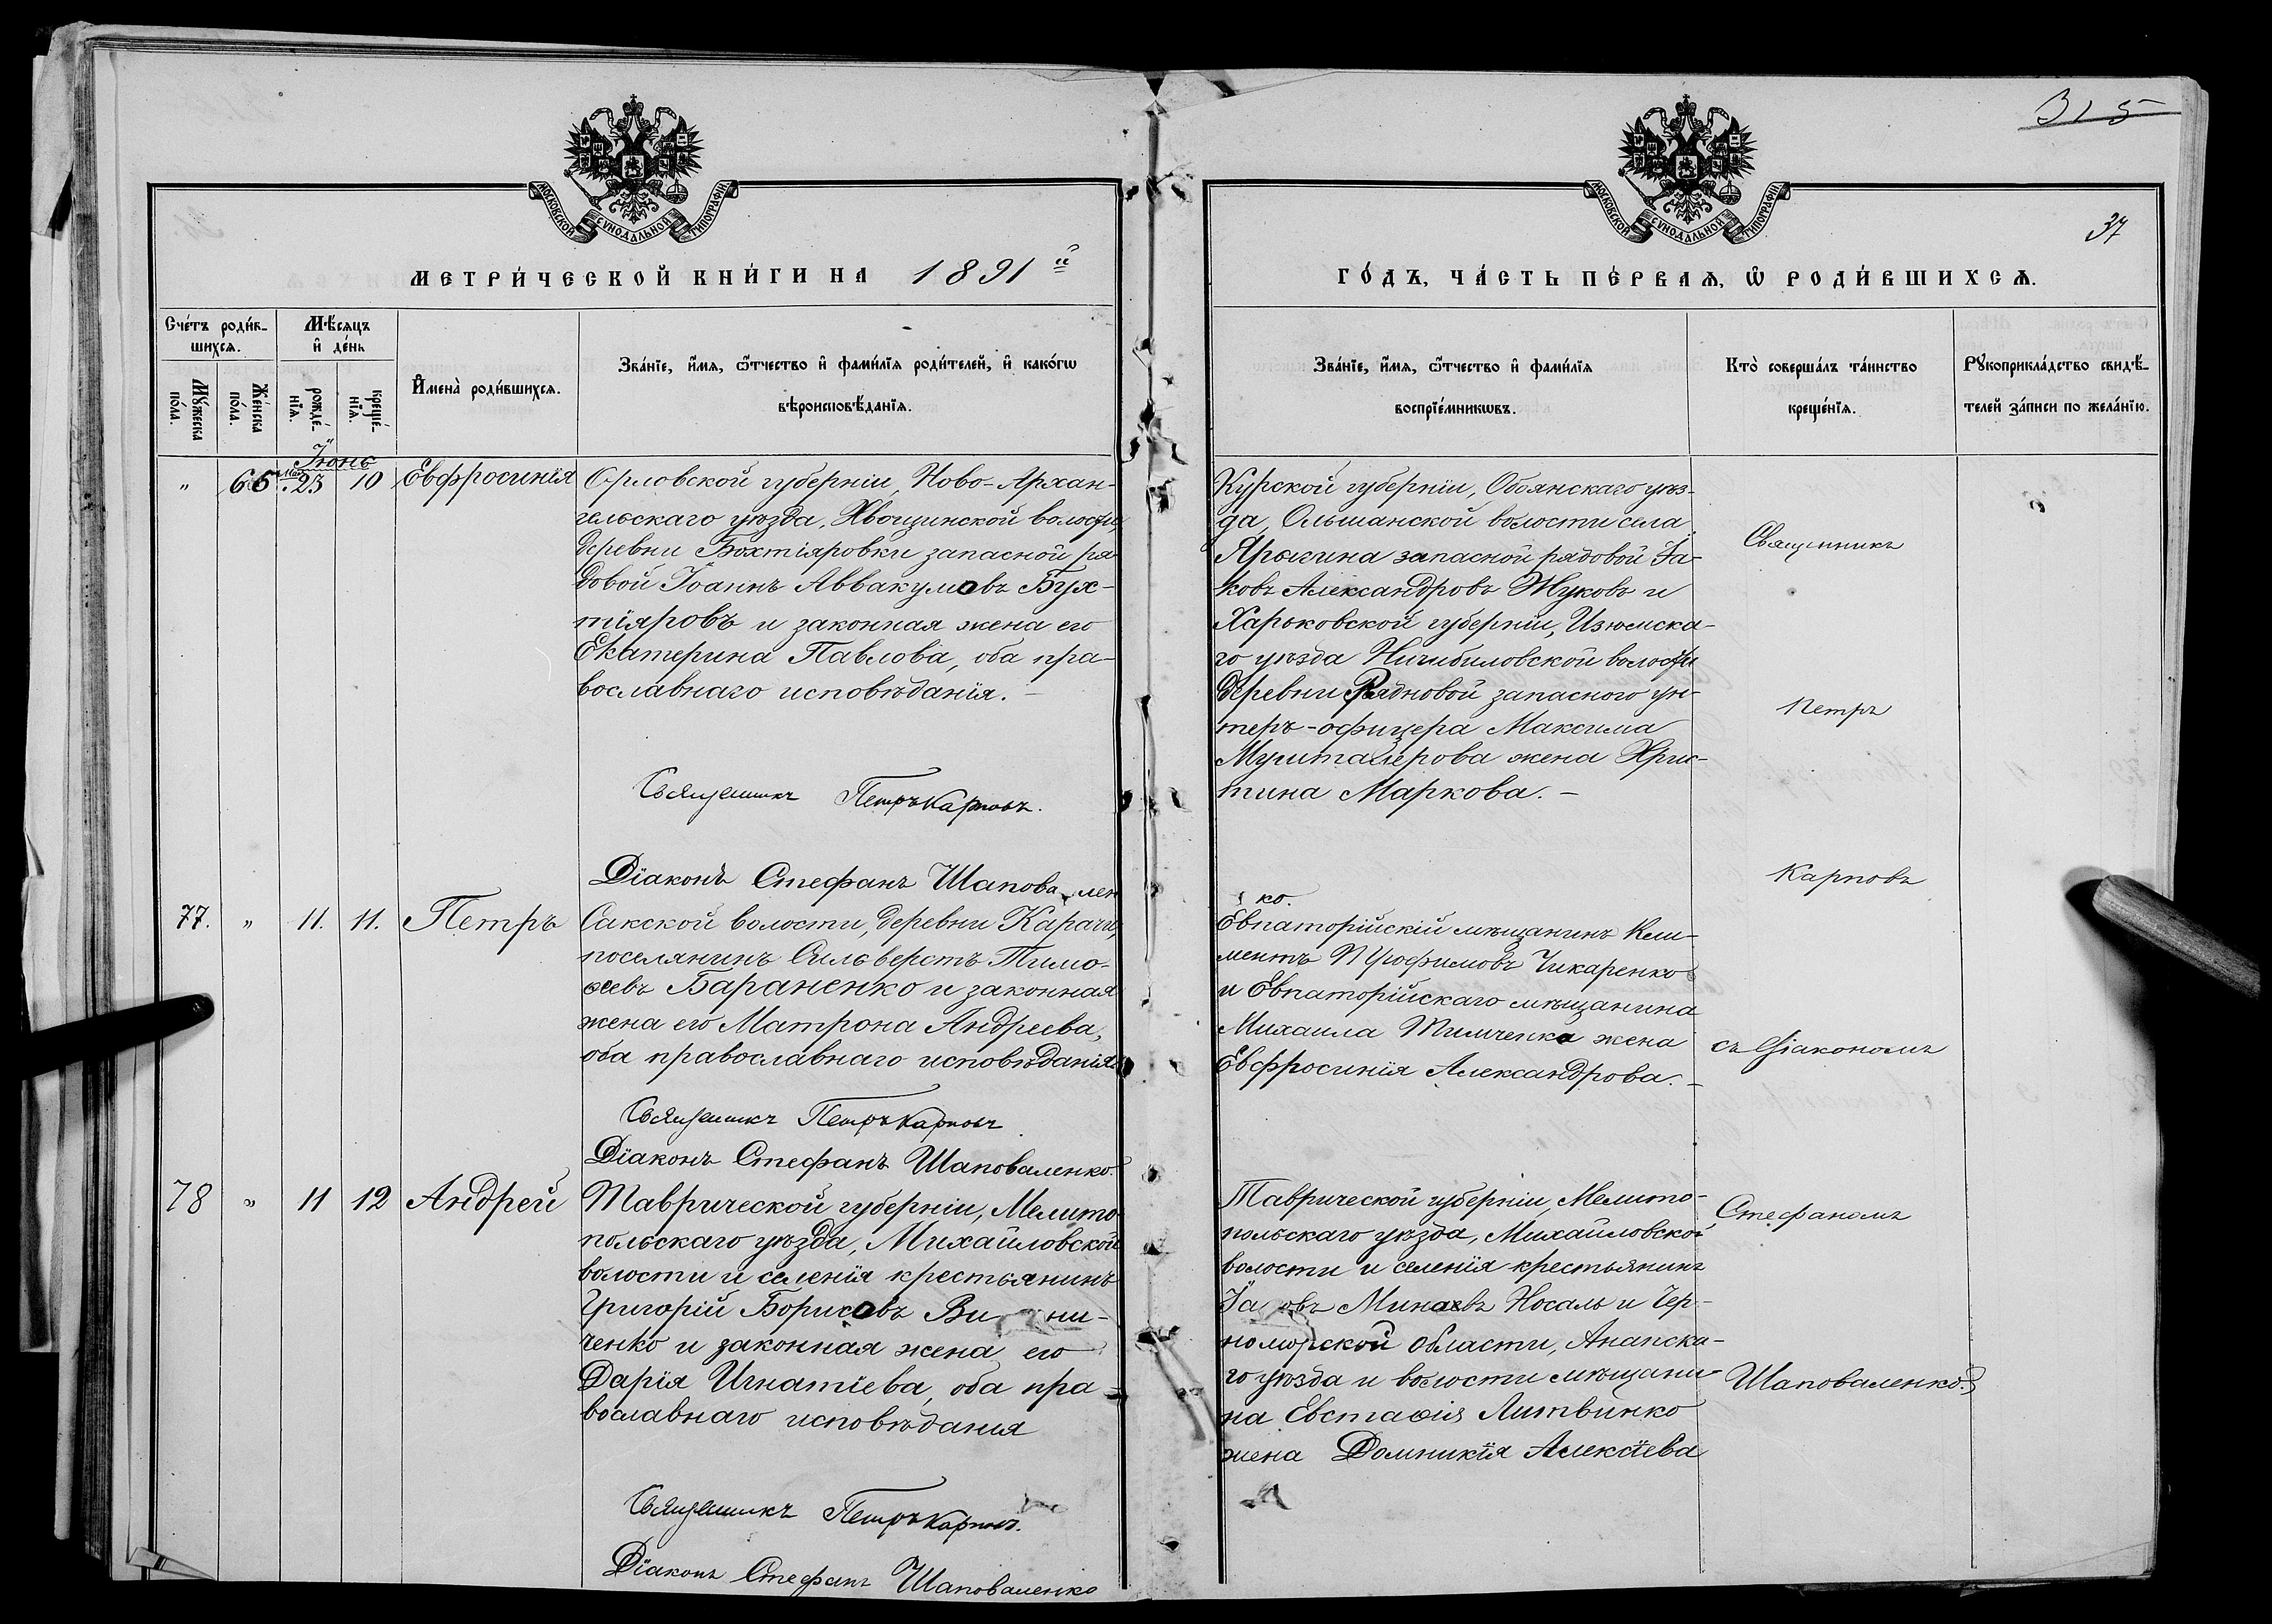 315
37
МОСКОВСКОЙ СѴНОДАЛЬНОЙ ТИПОГРАФІИ
МОСКОВСКОЙ СѴНОДАЛЬНОЙ ТИПОГРАФІИ
МЕТРИ́ЧЕСКОЙ КНИ́ГИ НА 1891й
ГО́ДЪ, ЧА́СТЬ ПЕ́РВАѦ, Ѽ РОДИ́ВШИХСѦ.
Сче́тъ роди́в-
шихсѧ.
Мѣ́сѧцъ
и҆ де́нь
Мꙋ́жеска
по́ла.
Же́нска
по́ла.
рожде́-
нїѧ.
креще́-
нїѧ.
И҆мена̀ роди́вшихсѧ.
Зва́нїе, и҆́мѧ, ѻ҆́тчество и҆ фами́лїѧ роди́телей, и҆ како́гѡ
вѣроисповѣ́данїѧ.
Зва́нїе, и҆́мѧ, ѻ҆́тчество и҆ фами́лїѧ
воспрїе́мникѡвъ.
Кто̀ соверша́лъ та́инство
креще́нїѧ.
Рꙋкоприкла́дство свидѣ́-
телей за́писи по жела́нїю.
Іюнь
" 65 Мая 23 10 Евфросинія
Орловской губерніи, Ново-Архан-
гельскаго уѣзда, Хвощинской волости,
деревни Бохтіяровки запасной ря-
довой Іоаннъ Аввакумовъ Бух-
тіяровъ и законная жена его
Екатерина Павлова, оба пра-
вославнаго исповѣданія.
Священникъ Петръ Карповъ.
Діаконъ Стефанъ Шаповален
ко.
Курской губерніи, Обоянскаго уѣз-
да, Ольшанской волости села
Ярыгина запасной рядовой Іа-
ковъ Александровъ Жуковъ и
Харьковской губерніи, Изюмска-
го уѣзда волости
деревни запасного ун-
теръ-офицера Максима
жена Хрис-
тина Маркова.
77. " 11. 11. Петръ
Сакской волости, деревни Карачи,
поселянинъ Сильверстъ Тимо-
ѳеевъ Бараненко и законная
жена его Матрона Андреева,
оба православнаго исповѣданія
Священникъ Петръ Карповъ
Діаконъ Стефанъ Шаповаленко.
Евпаторійскій мѣщанинъ Кли-
ментъ Трофимовъ Чикаренко
и Евпаторійскаго мѣщанина
Михаила Тимченка жена
Евфросинія Александрова.
78 " 11 12 Андрей
Таврической губерніи, Мелито-
польскаго уѣзда, Михайловской
волости и селенія крестьянинъ
Григорій Борисовъ Ви ни-
ченко и законная жена его
Дарія Игнатіева, оба пра-
вославнаго исповѣданія
Священникъ Петръ Карповъ.
Діаконъ Стефанъ Шаповаленко
Таврической губерніи, Мелито-
польскаго уѣзда, Михайловской
волости и селенія крестьянинъ
Іа овъ Минаевъ Носаль и Чер-
номорской области, Анапска-
го уѣзда и волости мѣщани-
на Евстаѳія Литвинко
жена Домникія Алексіева
Священникъ
Петръ
Карповъ
съ Діакономъ
Стефаномъ
Шаповаленко.